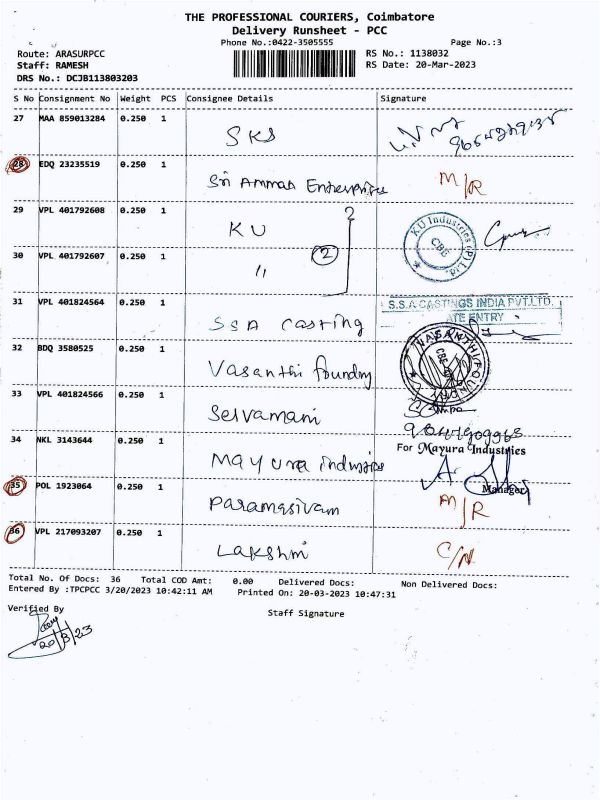 THE PROFESSIONAL COURIERS, Coimbatore
Delivery Runsheet - PCC
Phone No.:0422-3505555 Page No.:3
Route: ARASURPCC RS No.: 1138032
Staff: RAMESH RS Date: 20-Mar-2023
DRS No.: DCJB113803203
S No Consignment No Weight PCS Consignee Details Signature
27 MAA 859013284 0.250 1 SKS
28 EDQ 23235519 0.250 1 Sri Ammas Enterprises M/R
29 VPL 401792608 0.250 1 KU
KU Industries (P) Ltd. CBE
30 VPL 401792607 0.250 1 " 2
31 VPL 401824564 0.250 1 SSA casting
S.S.A CASTINGS INDIA PVT.LTD.
ATE ENTRY
32 BDQ 3580525 0.250 1 Vasanthi foundry
VASANTHI FOUNDRY CBE
33 VPL 401824566 0.250 1 Selvamani
34 NKL 3143644 0.250 1 Mayura industries
For Mayura Industries
Manager
35 POL 1923064 0.250 1 Paramasivam M/R
36 VPL 217093207 0.250 1 Lakshmi C/N
Total No. Of Docs: 36 Total COD Amt: 0.00 Delivered Docs: Non Delivered Docs:
Entered By :TPCPCC 3/20/2023 10:42:11 AM Printed On: 20-03-2023 10:47:31
Verified By Staff Signature
20/3/23